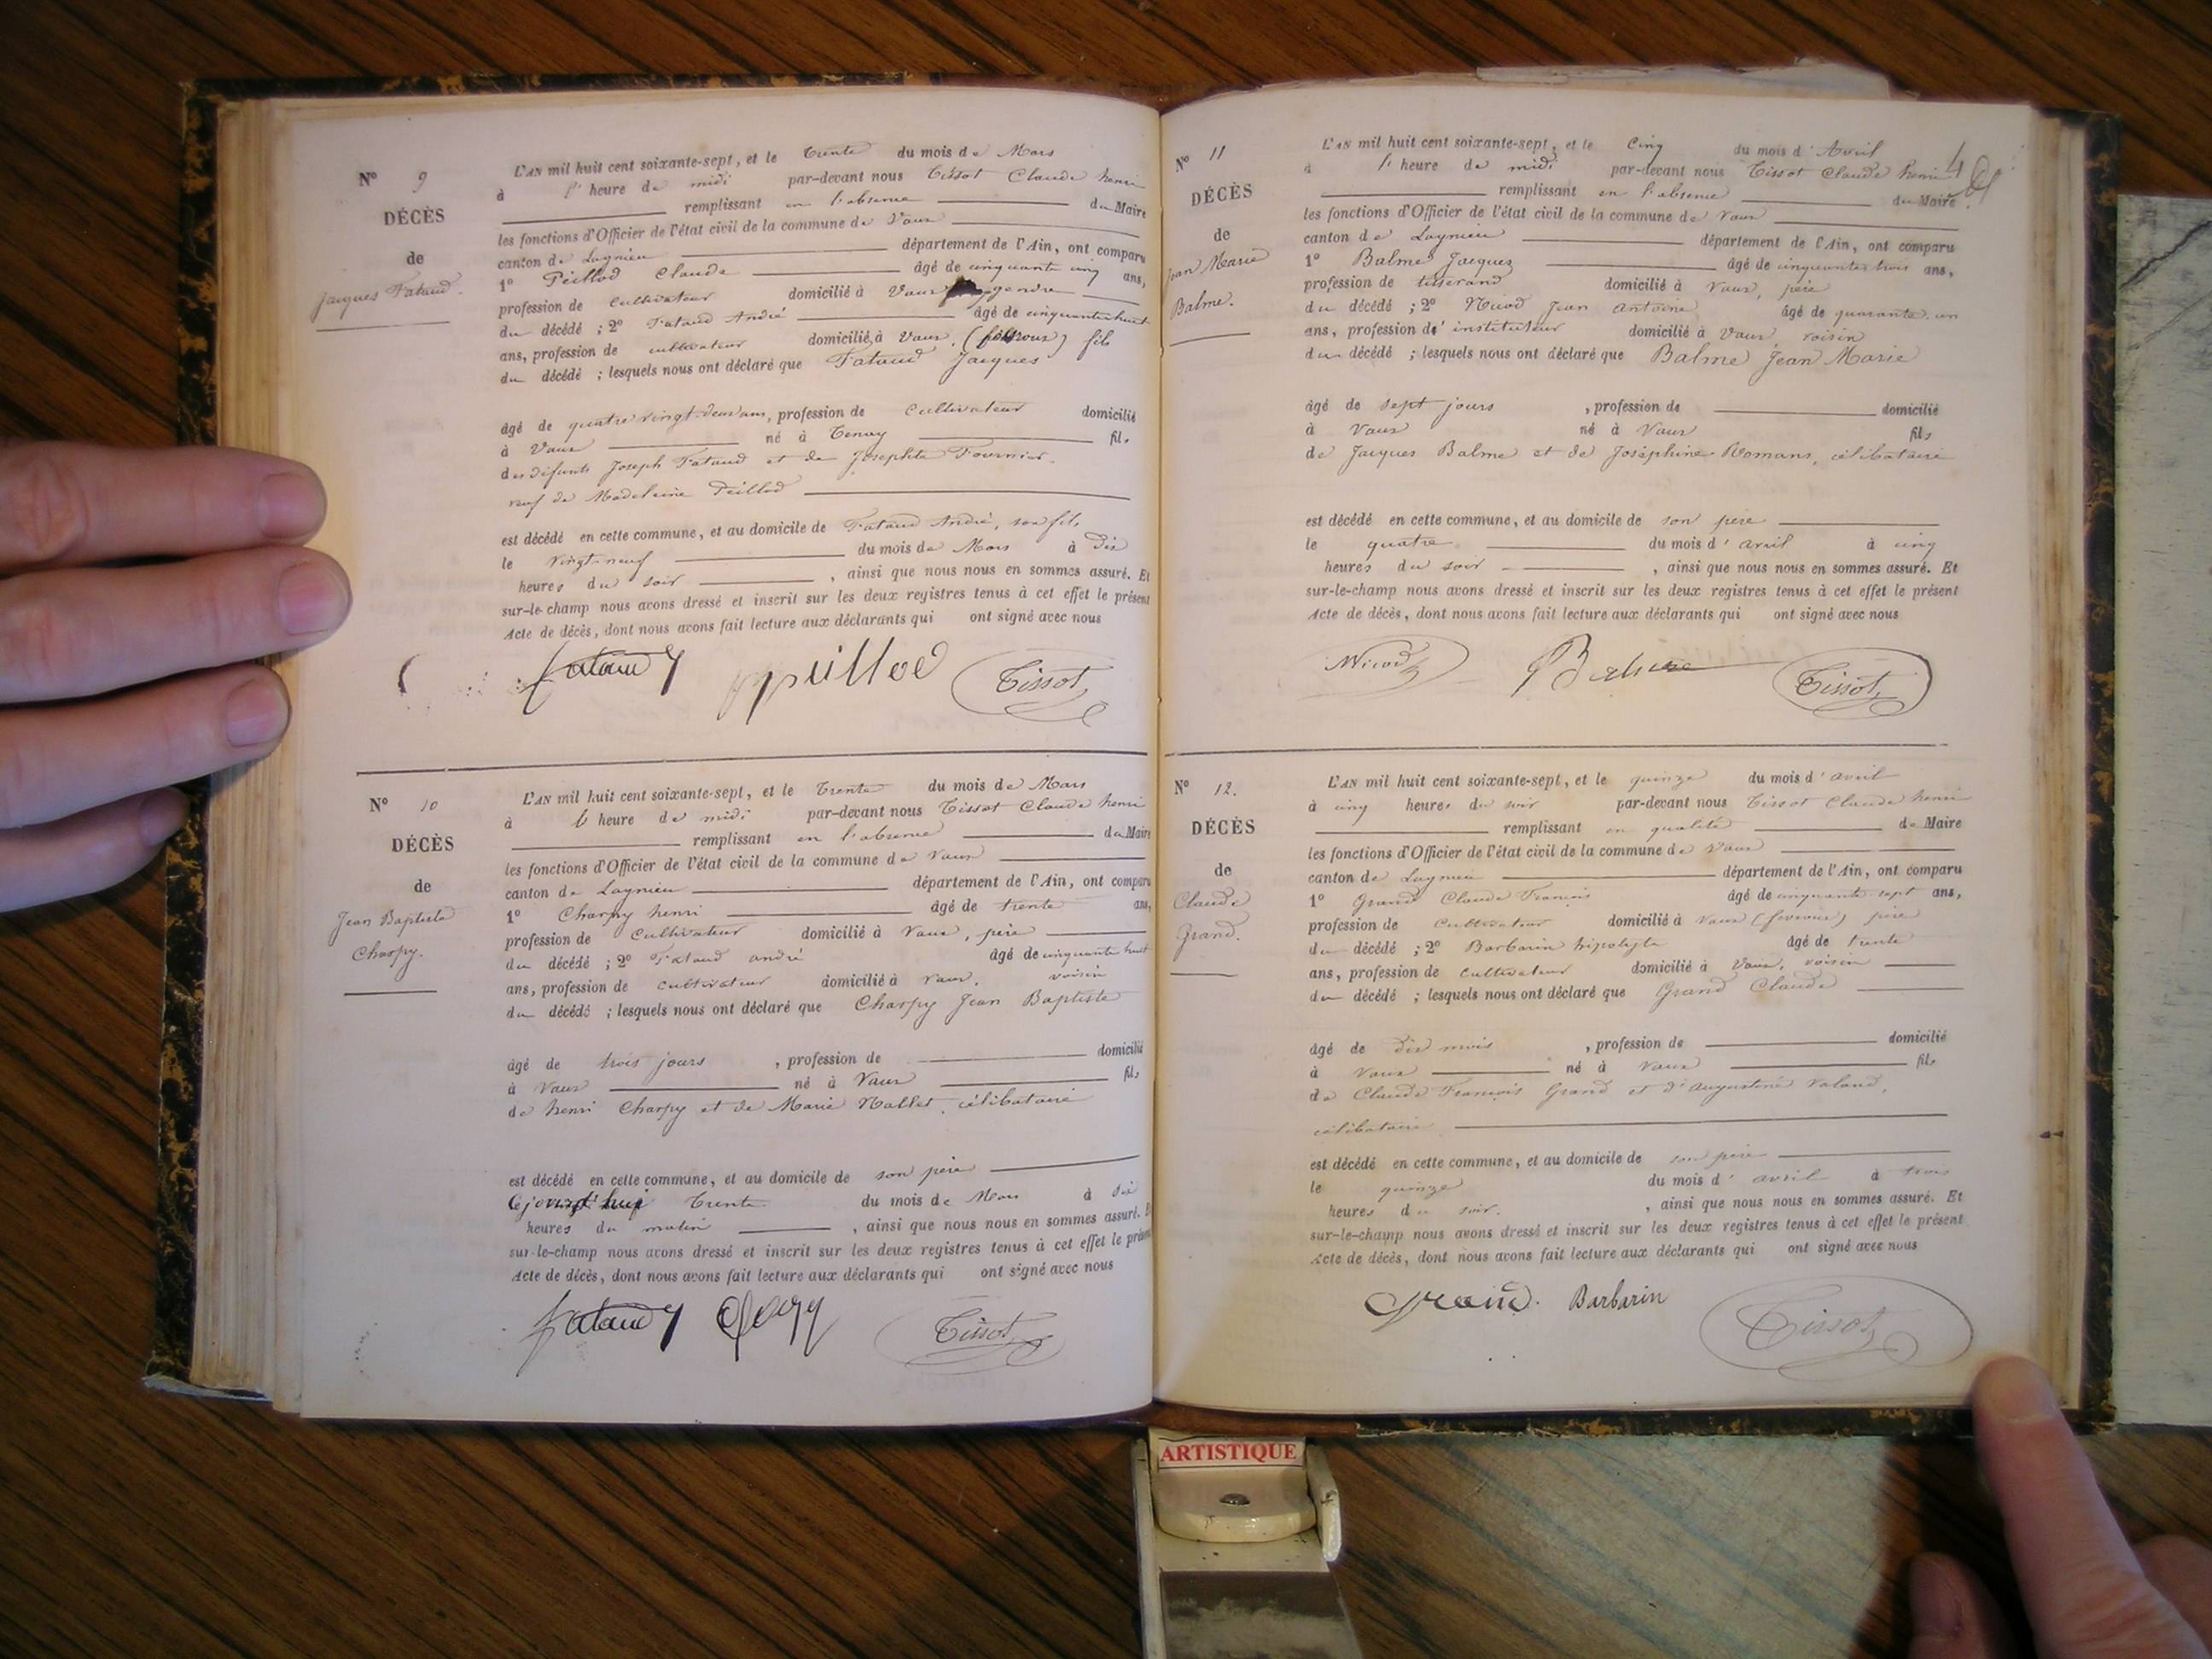 N° 9
DÉCÈS
de
Jacques Fataud.
L'AN mil huit cent soixante-sept, et le trente du mois de Mars
à l' heure de midi par-devant nous Tissot Claude henri
remplissant en l'absence du Maire
les fonctions d'Officier de l'état civil de la commune de Vaux
canton de Lagnieu département de l'Ain, ont comparu
1° Peillod Claude âgé de cinquante cinq ans,
profession de Cultivateur domicilié à Vaux gendre
du décédé ; 2° Fataud André âgé de cinquante huit
ans, profession de cultivateur domicilié à Vaux, fils
du décédé ; lesquels nous ont déclaré que Fataud Jacques
âgé de quatre vingt-deux ans, profession de Cultivateur domicilié
à Vaux né à Tenay fils
des défunts Joseph Fataud et de Josephte Fournier.
veuf de Madeleine Peillod
est décédé en cette commune, et au domicile de Fataud André, son fils
le vingt-neuf du mois de Mars à Dix
heures du soir , ainsi que nous nous en sommes assuré. Et
sur-le-champ nous avons dressé et inscrit sur les deux registres tenus à cet effet le présent
Acte de décès, dont nous avons fait lecture aux déclarants qui ont signé avec nous
fataud peillod Tissot
N° 10
DÉCÈS
de
Jean Baptiste
Charpy.
L'AN mil huit cent soixante-sept, et le trente du mois de Mars
à l' heure de midi par-devant nous Tissot Claude henri
remplissant en l'absence du Maire
les fonctions d'Officier de l'état civil de la commune de Vaux
canton de Lagnieu département de l'Ain, ont comparu
1° Charpy henri âgé de trente ans,
profession de Cultivateur domicilié à Vaux, père
du décédé ; 2° Fataud andré âgé de cinquante huit
ans, profession de cultivateur domicilié à Vaux, voisin
du décédé ; lesquels nous ont déclaré que Charpy Jean Baptiste
âgé de trois jours , profession de domicilié
à Vaux né à Vaux fils
de henri Charpy et de Marie Nallet, célibataire
est décédé en cette commune, et au domicile de son père
le jourd'hui trente du mois de Mars à dix
heures du matin , ainsi que nous nous en sommes assuré. Et
sur-le-champ nous avons dressé et inscrit sur les deux registres tenus à cet effet le présent
Acte de décès, dont nous avons fait lecture aux déclarants qui ont signé avec nous
fataud Tissot
N° 11
DÉCÈS
de
Jean Marie
Balme.
L'AN mil huit cent soixante-sept, et le Cinq du mois d' Avril
à l' heure de midi par-devant nous Tissot Claude henri
remplissant en l'absence du Maire
les fonctions d'Officier de l'état civil de la commune de Vaux
canton de Lagnieu département de l'Ain, ont comparu
1° Balme Jacques âgé de cinquante trois ans,
profession de tisserand domicilié à Vaux, père
du décédé ; 2° Nicod Jean Antoine âgé de quarante un
ans, profession d' instituteur domicilié à Vaux, voisin
du décédé ; lesquels nous ont déclaré que Balme Jean Marie
âgé de sept jours , profession de domicilié
à Vaux né à Vaux fils
de Jacques Balme et de Joséphine Romans, célibataire
est décédé en cette commune, et au domicile de son père
le quatre du mois d' avril à cinq
heures du soir , ainsi que nous nous en sommes assuré. Et
sur-le-champ nous avons dressé et inscrit sur les deux registres tenus à cet effet le présent
Acte de décès, dont nous avons fait lecture aux déclarants qui ont signé avec nous
Nicod Balme Tissot
N° 12.
DÉCÈS
de
Claude
Grand.
L'AN mil huit cent soixante-sept, et le quinze du mois d' avril
à cinq heures du soir par-devant nous Tissot Claude henri
remplissant en qualité de Maire
les fonctions d'Officier de l'état civil de la commune de Vaux
canton de Lagnieu département de l'Ain, ont comparu
1° Grand Claude François âgé de cinquante-sept ans,
profession de Cultivateur domicilié à Vaux père
du décédé ; 2° Barbarin hipolyte âgé de trente
ans, profession de Cultivateur domicilié à Vaux, voisin
du décédé ; lesquels nous ont déclaré que Grand Claude
âgé de dix mois , profession de domicilié
à Vaux né à Vaux fils
de Claude François Grand et d'augustine Valand,
célibataire
est décédé en cette commune, et au domicile de son père
le quinze du mois d' avril à trois
heures du soir. , ainsi que nous nous en sommes assuré. Et
sur-le-champ nous avons dressé et inscrit sur les deux registres tenus à cet effet le présent
Acte de décès, dont nous avons fait lecture aux déclarants qui ont signé avec nous
Grand. Barbarin Tissot
ARTISTIQUE